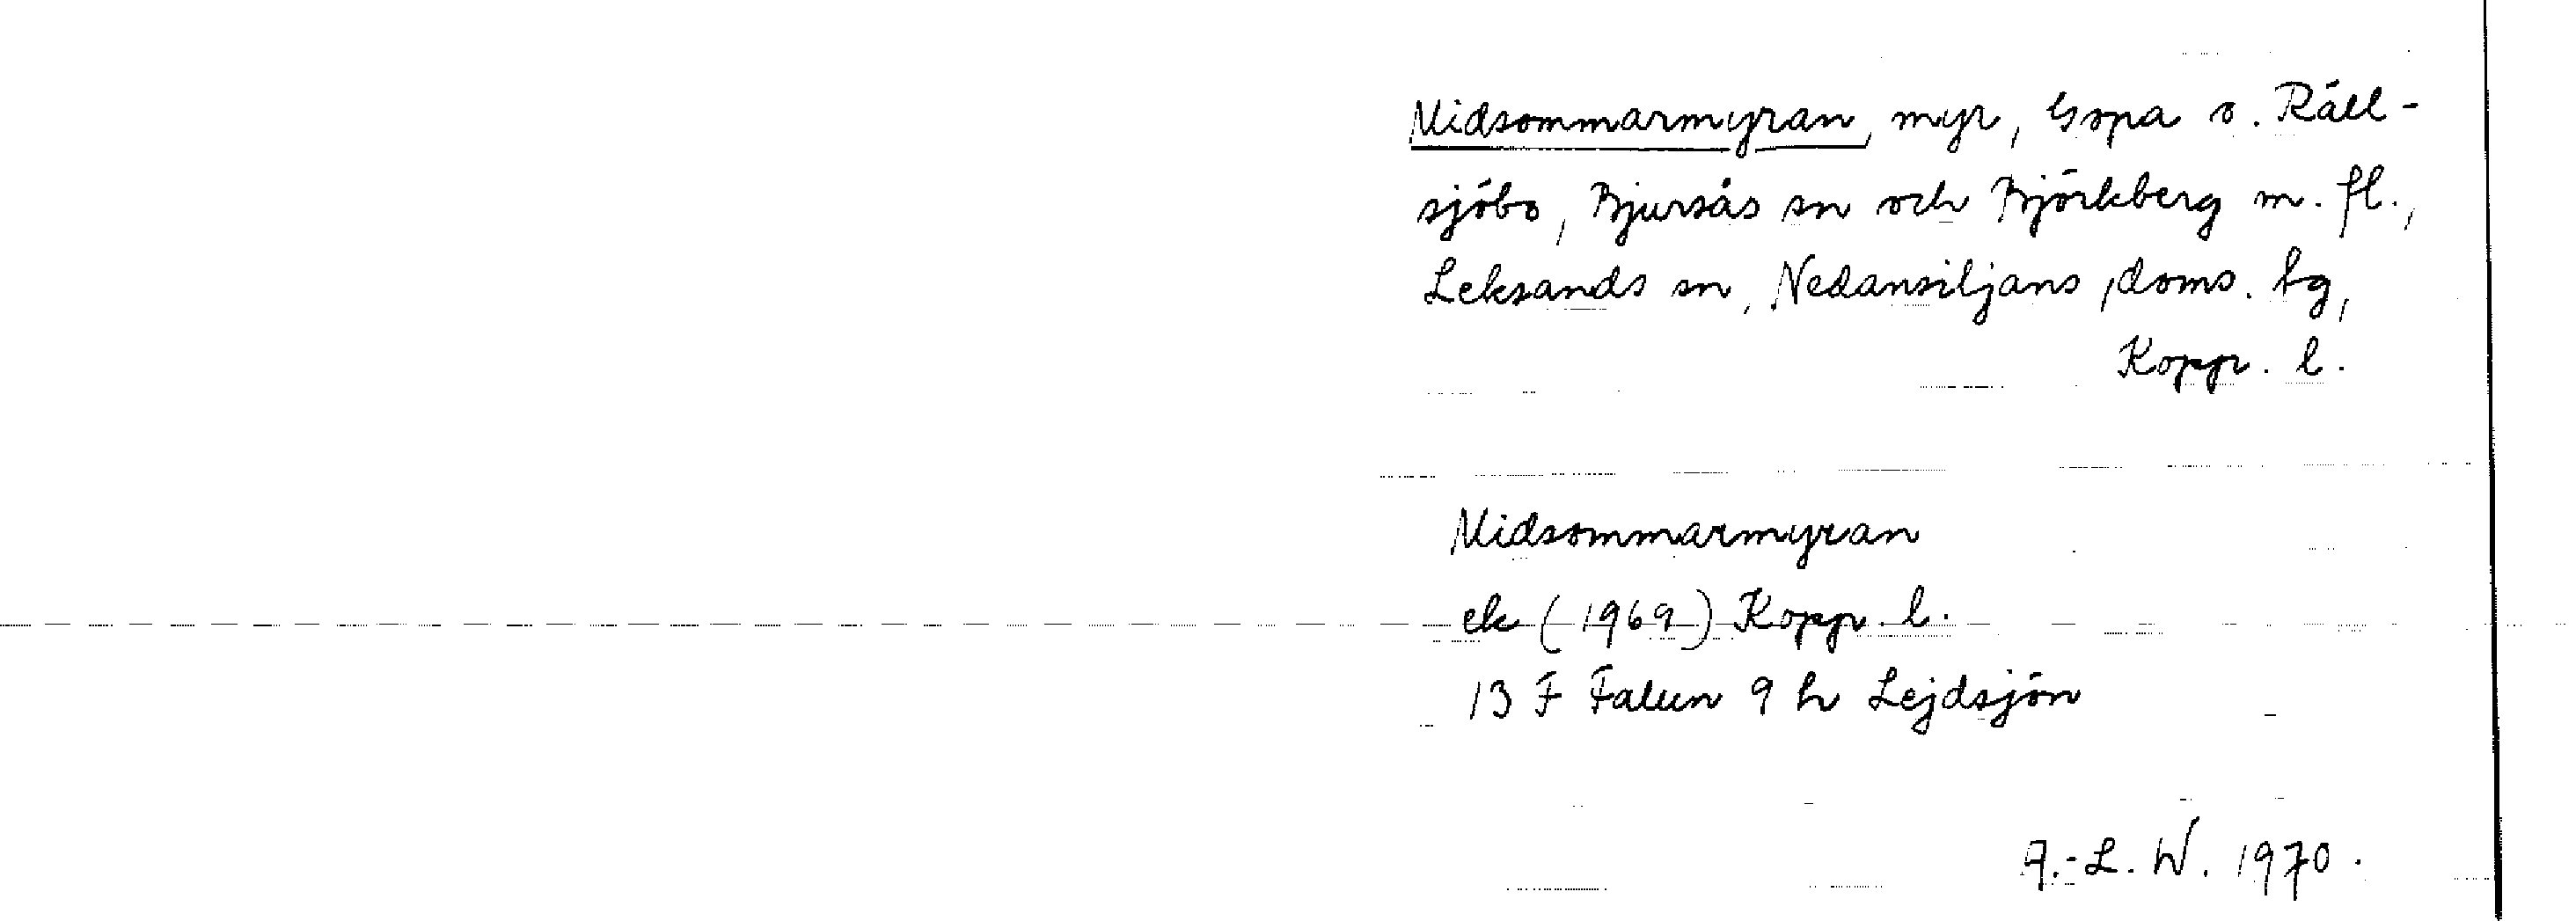 Midsommarmyran, myr, Gopa o. Räll-
sjöbo, Bjursås sn och Björkberg m. fl.,
Leksands sn, Nedansiljans doms. tg,
Kopp. l.
Midsommarmyran
ek (1969) Kopp. l.
13 F Falun 9 h Lejdsjön
A.-L. W. 1970.